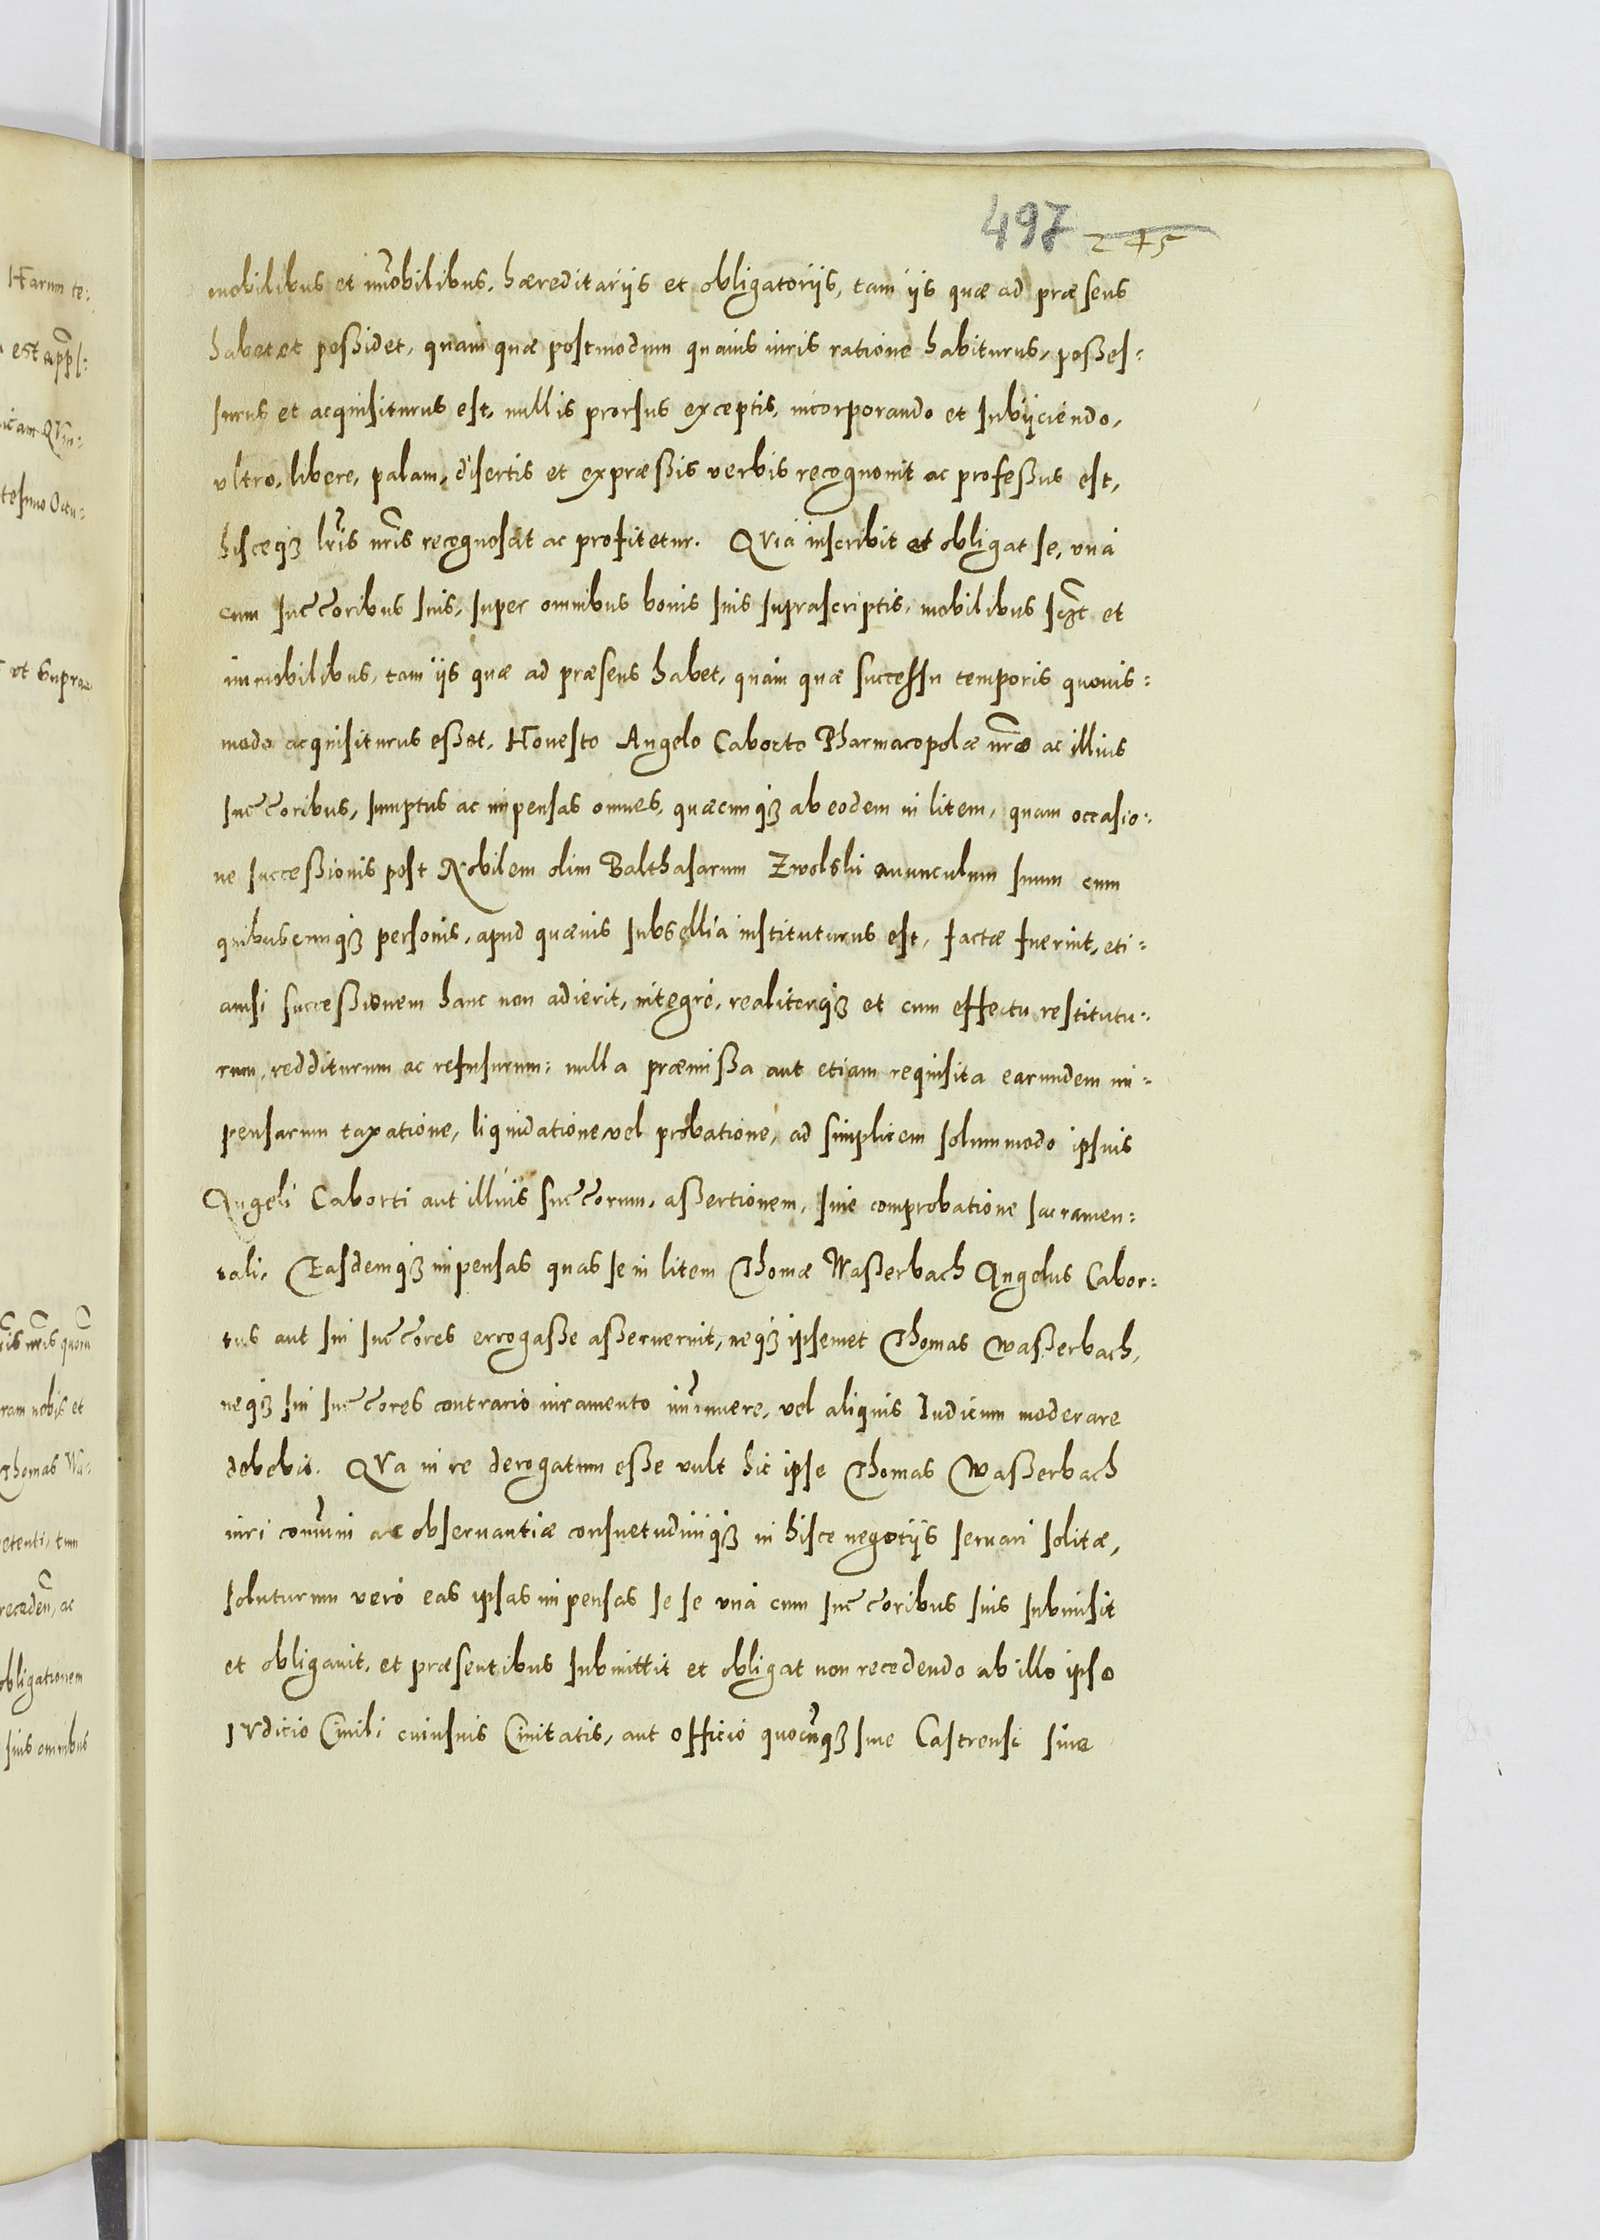 497 245
mobilibus et im̃obilibus, hæreditariis et obligatoriis, tam iis quæ ad præsens
habet et poßidet, quam quæ postmodum quauis iuris ratione habiturus, poßes-
surus et acquisiturus est, nullis prorsus exceptis, incorporando et subijciendo,
vltro, libere, palam, disertis et expræßis verbis recognouit ac profeßus est,
hisceqз lr̃is nr̃is recognoscit ac profitetur. QVia inscribit et obligat se, vná
cum succ̃oribus suis, super omnibus bonis suis suprascriptis, mobilibus scz̃t et
immobilibus, tam iis quæ ad præsens habet, quàm quæ successu temporis quouis-
modo acquisiturus eßet, Honesto Angelo Caborto Pharmacopolæ nr̃o ac illius
succ̃oribus, sumptus ac impensas omnes, quæcunqз ab eodem in litem, quam occasio-
ne succeßionis post Nobilem olim Balthasarum Zwolski auunculum suum cum
quibuscunqз personis, apud quæuis subsellia instituturus est, factæ fuerint, eti-
amsi succeßionem hanc non adierit, integrè, realiterqз et cum effectu restitutu-
rum, redditurum ac refusurum: nulla præmißa aut etiam requisita earundem im-
pensarum taxatione, liquidatione vel probatione, ad simplicem solummodo ipsius
Angeli Caborti aut illius succ̃orum, aßertionem, sine comprobatione sacramen-
tali, Easdemqз impensas quas se in litem Thomæ Waßerbach Angelus Cabor-
tus aut sui succ̃ores errogaße aßeruerint, neqз ipsemet Thomas Waßerbach,
neqз sui succ̃ores contrario iuramento im̃inuere, vel aliquis Iudicum moderare
debebit. QVa in re derogatum eße vult hic ipse Thomas Waßerbach
iuri com̃uni ac obseruantiæ consuetudiniqз in hisce negotiis seruari solitæ,
soluturum verò eas ipsas impensas se se vná cum succ̃oribus suis submisit
et obligauit, et præsentibus submittit et obligat non recedendo ab illo ipso
IVdicio Ciuili cuiusuis Ciuitatis, aut officio quocũqз siue Castrensi siue